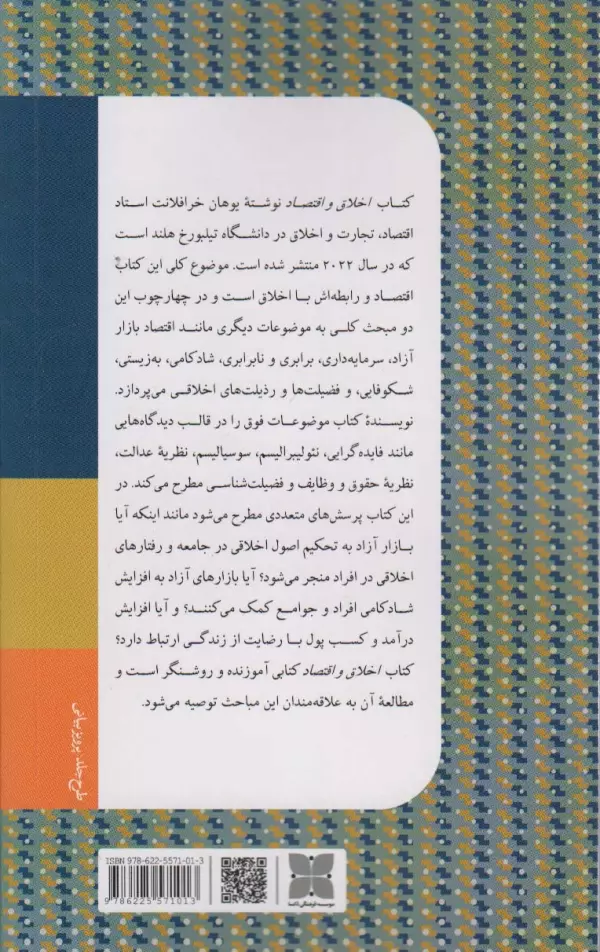 کتاب اخلاق و اقتصاد نوشتهٔ یوهان خرافلانت استاد
اقتصاد، تجارت و اخلاق در دانشگاه تیلبورخ هلند است
که در سال ۲۰۲۲ منتشر شده است. موضوع کلی این کتاب
اقتصاد و رابطه‌اش با اخلاق است و در چهارچوب این
دو مبحث کلی به موضوعات دیگری مانند اقتصاد بازار
آزاد، سرمایه‌داری، برابری و نابرابری، شادکامی، به‌زیستی،
شکوفایی، و فضیلت‌ها و رذیلت‌های اخلاقی می‌پردازد.
نویسندهٔ کتاب موضوعات فوق را در قالب دیدگاه‌هایی
مانند فایده‌گرایی، نئولیبرالیسم، سوسیالیسم، نظریهٔ عدالت،
نظریهٔ حقوق و وظایف و فضیلت‌شناسی مطرح می‌کند. در
این کتاب پرسش‌های متعددی مطرح می‌شود مانند اینکه آیا
بازار آزاد به تحکیم اصول اخلاقی در جامعه و رفتارهای
اخلاقی در افراد منجر می‌شود؟ آیا بازارهای آزاد به افزایش
شادکامی افراد و جوامع کمک می‌کنند؟ و آیا افزایش
درآمد و کسب پول با رضایت از زندگی ارتباط دارد؟
کتاب اخلاق و اقتصاد کتابی آموزنده و روشنگر است و
مطالعهٔ آن به علاقه‌مندان این مباحث توصیه می‌شود.
طرح جلد: پرویز بیانی
ISBN 978-622-5571-01-3
9 786225 571013
موسسه فرهنگی دکسا